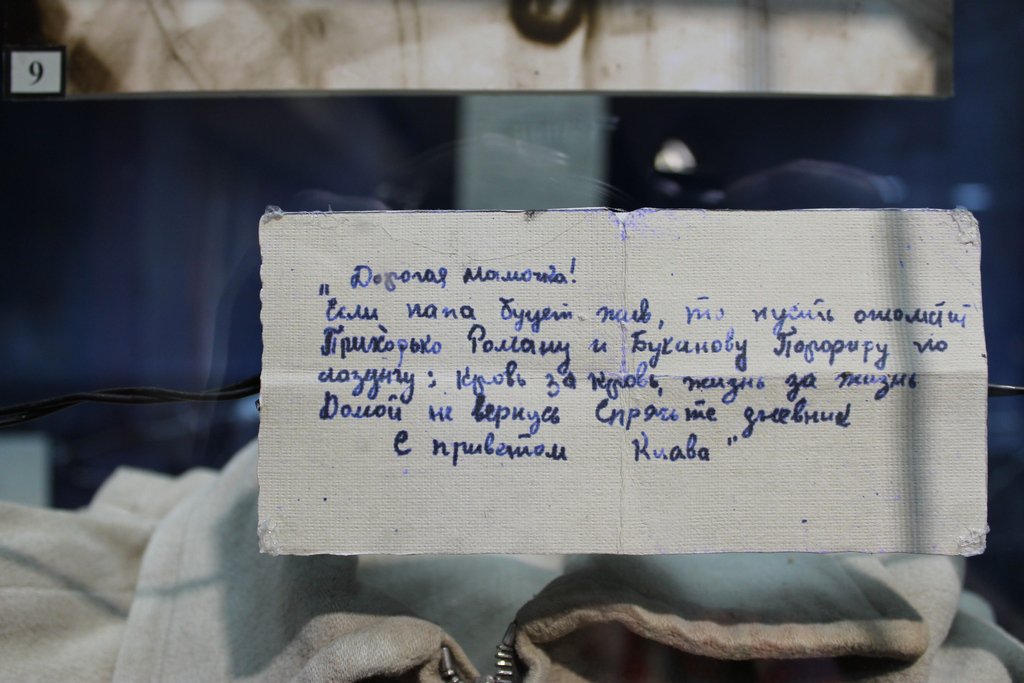 9
„Дорогая мамочка!
Если папа будет жив, то пусть отомстит
Приходько Роману и Буханову Порфиру по
лозунгу: кровь за кровь, жизнь за жизнь
Домой не вернусь Спрячьте дневник
С приветом Клава"